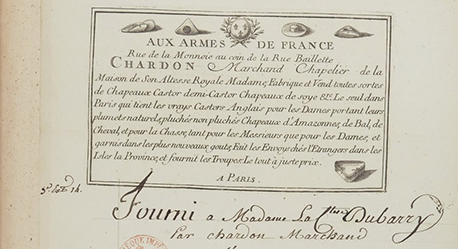 AUX ARMES DE FRANCE
Rue de la Monnoie au coin de la Rue Baillette
CHARDON Marchand Chapelier de la
Maison de Son Altesse Royale Madame, Fabrique et Vend toutes sortes
de Chapeaux Castor demi-Castor Chapeaux de soye &c. Le seul dans
Paris qui tient les vrays Castors Anglais pour les Dames portant leurs
plumets naturels, pluchés non pluchés Chapeaux d'Amazonnes, de Bal, de
Cheval, et pour la Chasse, tant pour les Messieurs que pour les Dames, et
garnis dans les plus nouveaux gouts, Fait les Envoys chés l'Etrangers dans les
Isles la Province, et fournit les Troupes. Le tout à juste prix.
A PARIS.
Fourni a Madame La C.tesse Dubarry
par chardon Marchand